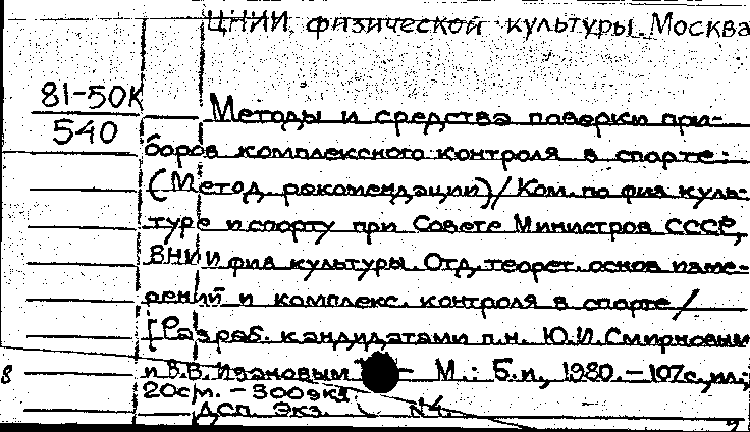 ЦНИИ физической культуры. Москва
81-50К
540
Методы и средства поверки при-
боров комплексного контроля в спорте:
(Метод. рекомендации)/Ком. по физ куль-
туре и спорту при Совете Министров СССР,
ВНИИ физ культуры. Отд. теорет. основ изме-
рений и комплекс. контроля в спорте/
[Разраб. кандидатами п.н. Ю.И.Смирновым
и В.В. Ивановым - М.: Б.и, 1980. -107с., ил.;
8
20см. - 300экз.
ДСП. Экз. №4.